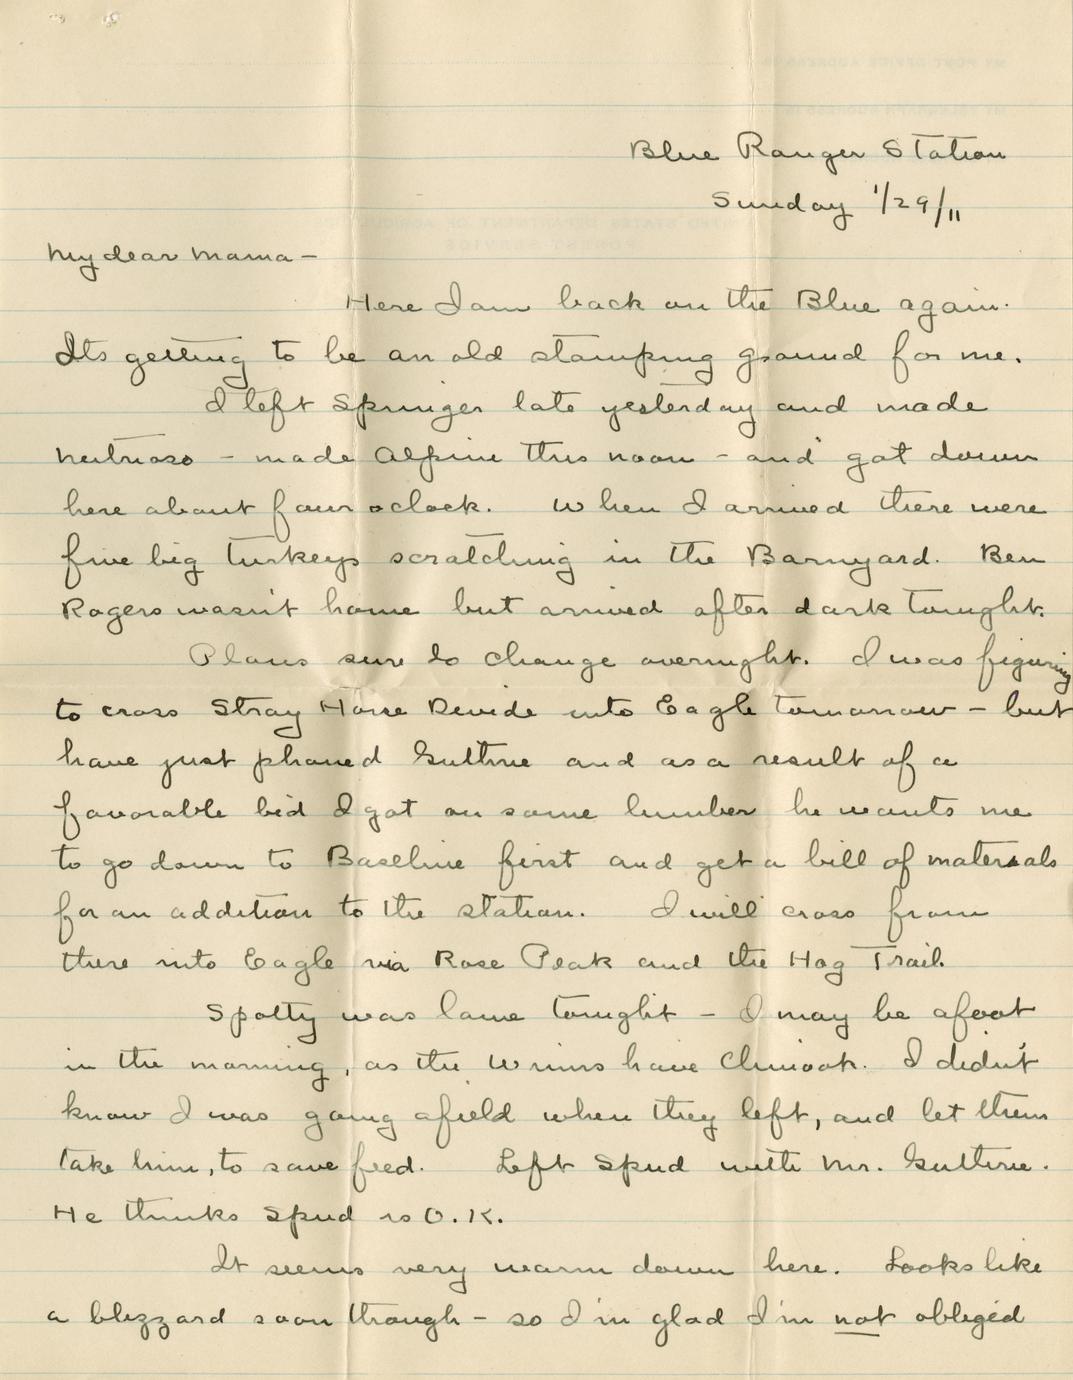 Blue Ranger Station
Sunday 1/29/11
My dear Mama -
Here I am back on the Blue again.
Its getting to be an old stamping ground for me.
I left Springer late yesterday and made
Nutrioso - made Alpine this noon - and got down
here about four oclock. When I arrived there were
five big turkeys scratching in the Barnyard. Ben
Rogers wasn't home but arrived after dark tonight.
Plans sure do change overnight. I was figuring
to cross Stray Horse Devide into Eagle tomorrow - but
have just phoned Guthrie and as a result of a
favorable bid I got on some lumber he wants me
to go down to Baseline first and get a bill of materials
for an addition to the station. I will cross from
there into Eagle via Rose Peak and the Hog Trail.
Spotty was lame tonight - I may be afoot
in the morning, as the Winns have Chinook. I didn't
know I was going afield when they left, and let them
take him, to save feed. Left Spud with Mr. Guthrie.
He thinks Spud is O.K.
It seems very warm down here. Looks like
a blizzard soon though - so I'm glad I'm not obliged